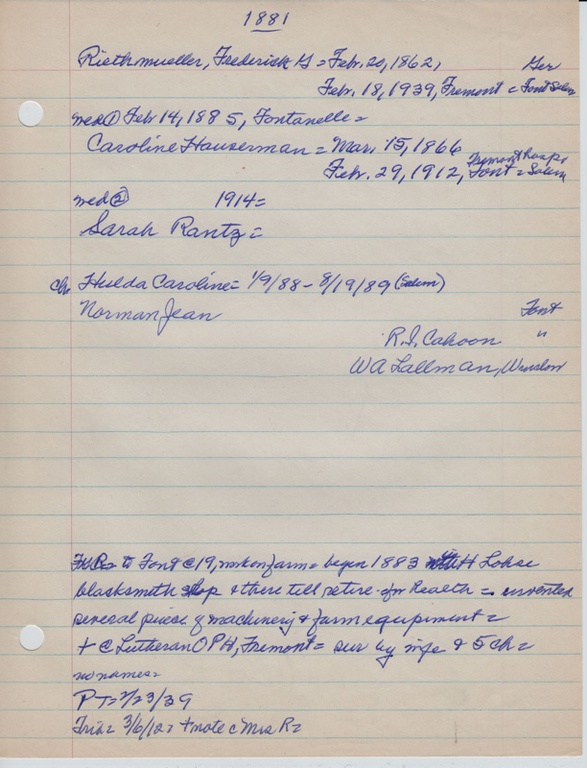 1881
Riethmueller, Frederick G = Feb. 20, 1862, Ger
Feb. 18, 1939, Fremont = Font Salem
med ① Feb 14, 1885, Fontanelle =
Caroline Hauserman = Mar. 15, 1866
Fremont hosp
Feb. 29, 1912, Font = Salem
med ② 1914 =
Sarah Rantz =
chr Hulda Caroline = 1/9/88 - 8/19/89 (Salem)
Norman Jean Font
R.I. Cahoon "
WA Lallman, Winslow
to Font @ 19, work on farm = began 1883 with H Lohse
blacksmith shop & there till retire health = invented
several piece of machinery & farm equipment =
+ @ Lutheran O P H, Fremont = sur by wife & 5 ch =
no names =
PT = 2/23/39
Trib = 3/6/12 = + note c Mrs R =